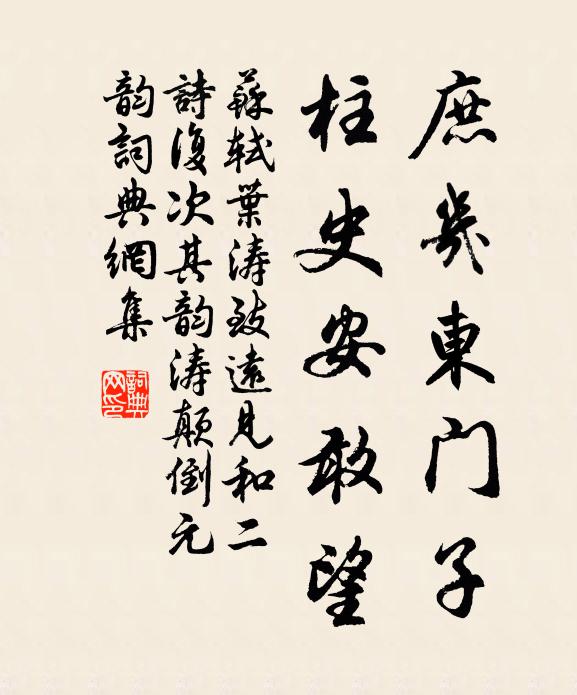 庶幾東門子
柱史安敢望
蘇軾葉濤致遠見和二
詩復次其韵濤顛倒元
韵詞典網集
詞典
网印